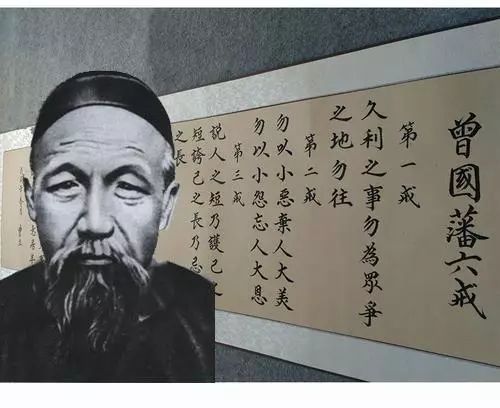 曾國藩六戒
第一戒
久利之事勿為眾爭
之地勿往
第二戒
勿以小惡棄人大美
勿以小怨忘人大恩
第三戒
說人之短乃護己之
短誇己之長乃忌
之長